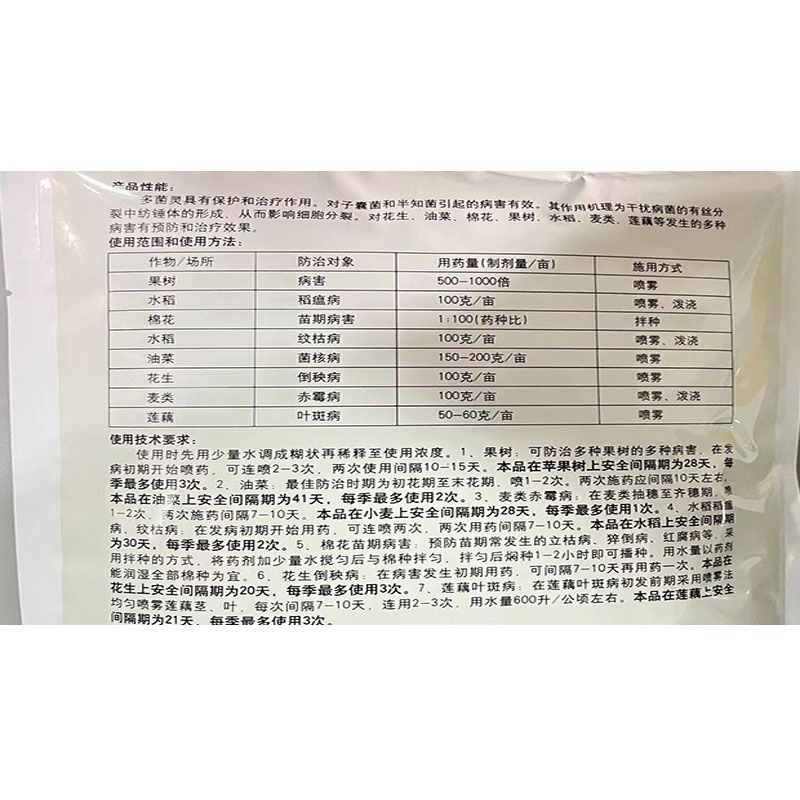 产品性能:
多菌灵具有保护和治疗作用。对子囊菌和半知菌引起的病害有效。其作用机理为干扰病菌的有丝分
裂中纺锤体的形成,从而影响细胞分裂。对花生、油菜、棉花、果树、水稻、麦类、莲藕等发生的多种
病害有预防和治疗效果。
使用范围和使用方法:
作物/场所 防治对象 用药量(制剂量/亩) 施用方式
果树 病害 500-1000倍 喷雾
水稻 稻瘟病 100克/亩 喷雾、泼浇
棉花 苗期病害 1:100(药种比) 拌种
水稻 纹枯病 100克/亩 喷雾、泼浇
油菜 菌核病 150-200克/亩 喷雾
花生 倒秧病 100克/亩 喷雾
麦类 赤霉病 100克/亩 喷雾、泼浇
莲藕 叶斑病 50-60克/亩 喷雾
使用技术要求:
使用时先用少量水调成糊状再稀释至使用浓度。1、果树:可防治多种果树的多种病害,在发
病初期开始喷药,可连喷2-3次,两次使用间隔10-15天。本品在苹果树上安全间隔期为28天,每
季最多使用3次。2、油菜:最佳防治时期为初花期至末花期,喷1-2次。两次施药应间隔10天左右。
本品在油菜上安全间隔期为41天,每季最多使用2次。3、麦类赤霉病:在麦类抽穗至齐穗期,喷
1-2次,两次施药间隔7-10天。本品在小麦上安全间隔期为28天,每季最多使用1次。4、水稻稻瘟
病、纹枯病:在发病初期开始用药,可连喷两次,两次用药间隔7-10天。本品在水稻上安全间隔期
为30天,每季最多使用2次。5、棉花苗期病害:预防苗期常发生的立枯病、猝倒病、红腐病等,采
用拌种的方式,将药剂加少量水搅匀后与棉种拌匀,拌匀后焖种1-2小时即可播种。用水量以药剂
能润湿全部棉种为宜。6、花生倒秧病:在病害发生初期用药,可间隔7-10天再用药一次。本品在
花生上安全间隔期为20天,每季最多使用3次。7、莲藕叶斑病:在莲藕叶斑病初发前期采用喷雾法
均匀喷雾莲藕茎、叶,每次间隔7-10天,连用2-3次,用水量600升/公顷左右。本品在莲藕上安全
间隔期为21天,每季最多使用3次。